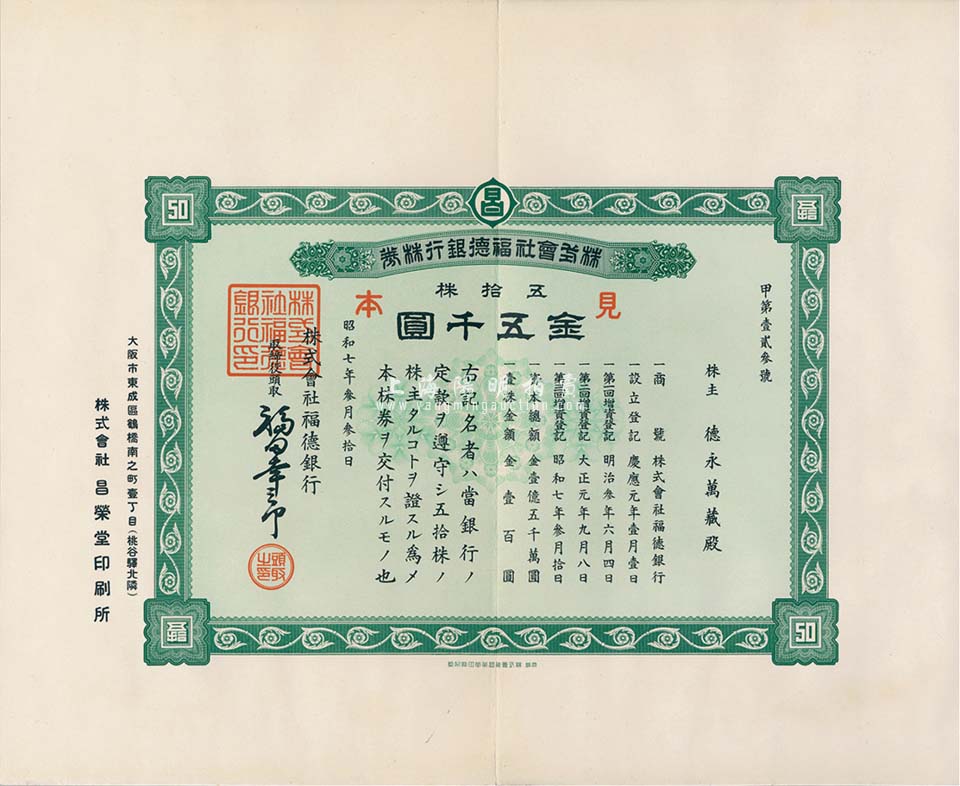 株式會社福德銀行株券
五拾株
見本
金五千圓
甲第壹貳參號
株主 德永萬藏殿
一商號 株式會社福德銀行
一設立登記 慶應元年壹月壹日
一第一回增資登記 明治參年六月四日
一第二回增資登記 大正元年九月八日
一第三回增資登記 昭和七年參月拾日
一資本總額 金壹億五千萬圓
一壹株金額 金壹百圓
右記名者ハ當銀行ノ
定款ヲ遵守シ五拾株ノ
株主タルコトヲ證スル爲メ
本株券ヲ交付スルモノ也
昭和七年參月參拾日
株式會社福德銀行
取締役頭取
株式會
社福德
銀行印
頭取
之印
50
50
昌
上海陽明拍賣
www.yangmingauction.com
大阪市東成區鶴橋南之町壹丁目(桃谷驛北隣)
株式會社 昌榮堂印刷所